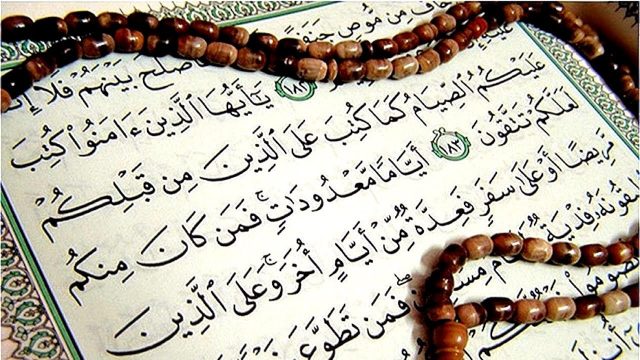 خَافَ مِن مُّوصٍ
صْلَحَ بَيْنَهُمْ فَلَآ
١٨٢ يَٰٓأَيُّهَا ٱلَّذِينَ ءَامَنُوا۟ كُتِبَ
عَلَيْكُمُ ٱلصِّيَامُ كَمَا كُتِبَ عَلَى ٱلَّذِينَ مِن قَبْلِكُمْ
لَعَلَّكُمْ تَتَّقُونَ ١٨٣ أَيَّامًا مَّعْدُودَٰتٍ ۚ فَمَن كَانَ مِنكُم
مَّرِيضًا أَوْ عَلَىٰ سَفَرٍ فَعِدَّةٌ مِّنْ أَيَّامٍ أُخَرَ ۚ وَعَلَى ٱلَّذِينَ
يقُونَهُۥ فِدْيَةٌ طَعَامُ مِسْكِينٍ ۖ فَمَن تَطَوَّعَ